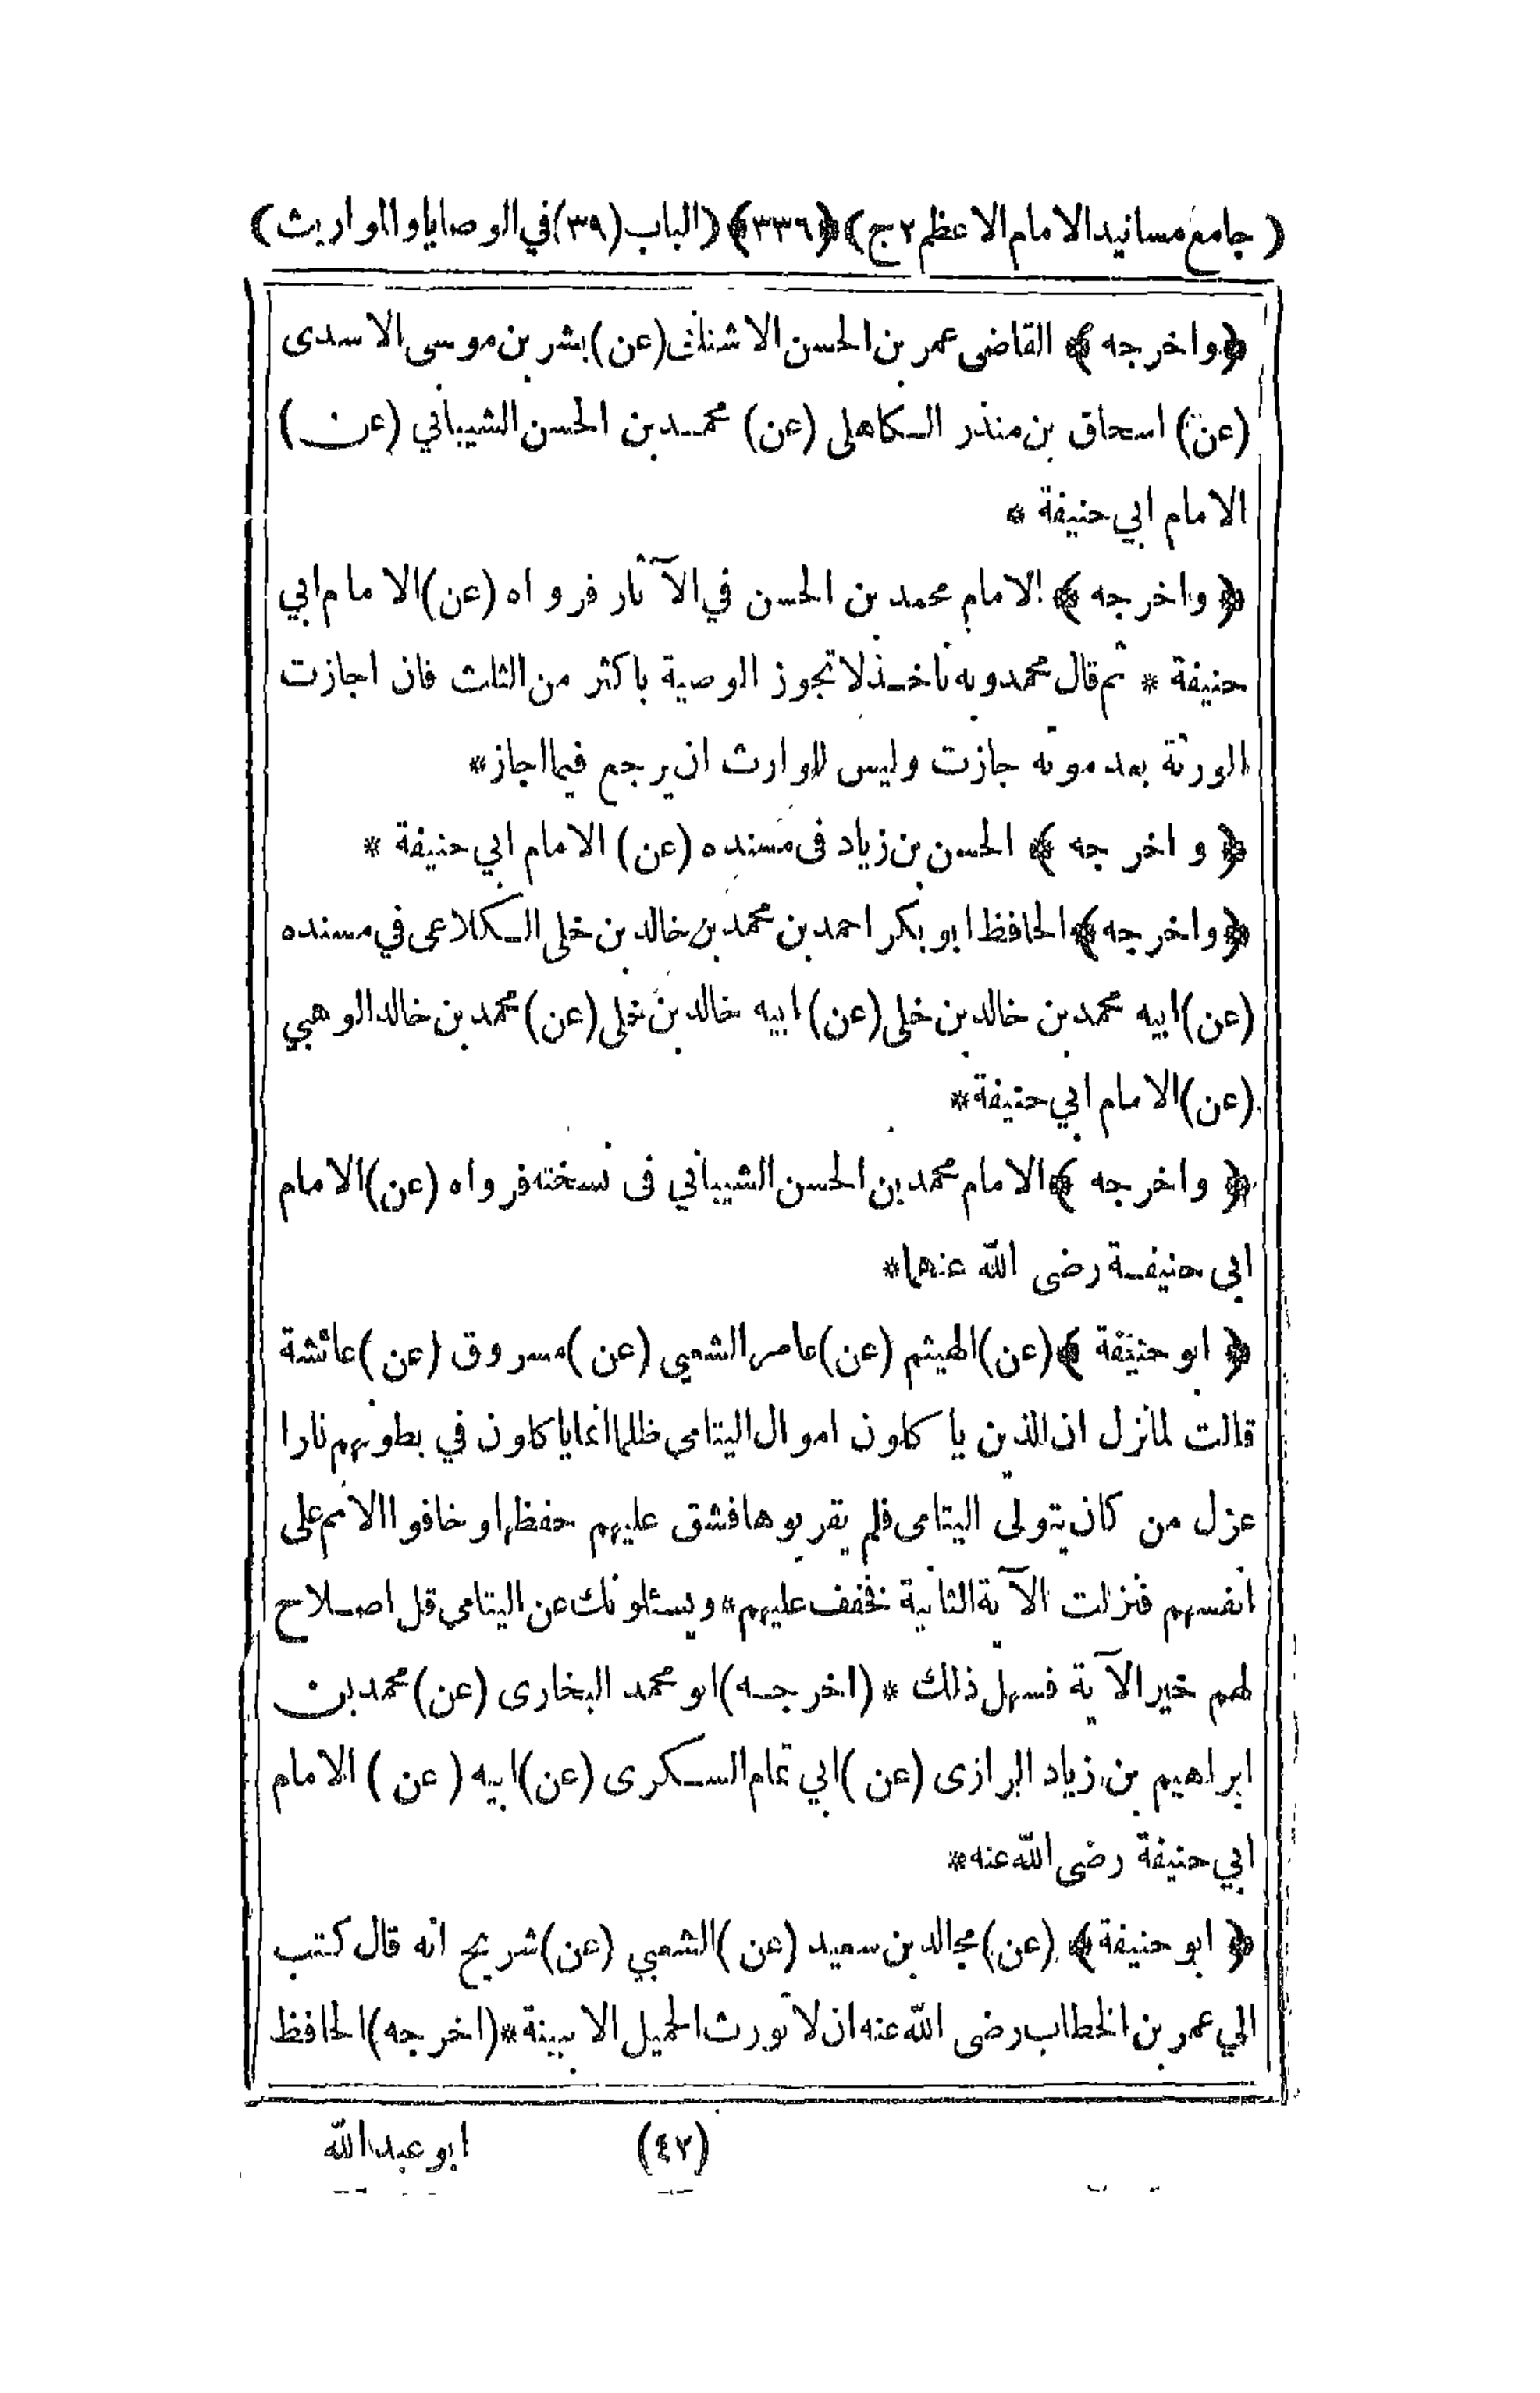 ( جامع مسانيد الامام الاعظم ٢ ج ) ﴿٣٣٦﴾ ( الباب (٣٩) في الوصايا والمواريث )
﴿واخرجه﴾ القاضى عمر بن الحسن الاشنانى (عن) بشر بن موسى الاسدى
(عن) اسحاق بن منذر الكاهلى (عن) محمد بن الحسن الشيباني (عن)
الامام ابي حنيفة *
﴿واخرجه﴾ الامام محمد بن الحسن في الآثار فرواه (عن) الامام ابي
حنيفة * ثم قال محمد وبه ناخذ لا تجوز الوصية باكثر من الثلث فان اجازت
الورثة بعد موته جازت وليس للوارث ان يرجع فيما اجاز *
﴿واخرجه﴾ الحسن بن زياد فى مسنده (عن) الامام ابي حنيفة *
﴿واخرجه﴾ الحافظ ابو بكر احمد بن محمد بن خالد بن خلى الكلاعى في مسنده
(عن) ابيه محمد بن خالد بن خلى (عن) ابيه خالد بن خلى (عن) محمد بن خالد الوهبي
(عن) الامام ابي حنيفة *
﴿واخرجه﴾ الامام محمد بن الحسن الشيباني فى نسخته فرواه (عن) الامام
ابي حنيفة رضى الله عنهما *
﴿ابو حنيفة﴾ (عن) الهيثم (عن) عامر الشعبي (عن) مسروق (عن) عائشة
قالت لما نزل ان الذين ياكلون اموال اليتامى ظلما انما ياكلون في بطونهم نارا
عزل من كان يتولى اليتامى فلم يقربوها فشق عليهم حفظها وخافوا الاثم على
انفسهم فنزلت الآية الثانية فخفف عليهم * ويسئلونك عن اليتامى قل اصلاح
لهم خير الآية فسهل ذلك * (اخرجه) ابو محمد البخارى (عن) محمد بن
ابراهيم بن زياد الرازى (عن) ابي تمام السكرى (عن) ابيه (عن) الامام
ابي حنيفة رضى الله عنه *
﴿ابو حنيفة﴾ (عن) مجالد بن سعيد (عن) الشعبي (عن) شريح انه قال كتب
الي عمر بن الخطاب رضى الله عنه ان لا نورث الحميل الا ببينة * (اخرجه) الحافظ
(٤٢) ابو عبد الله